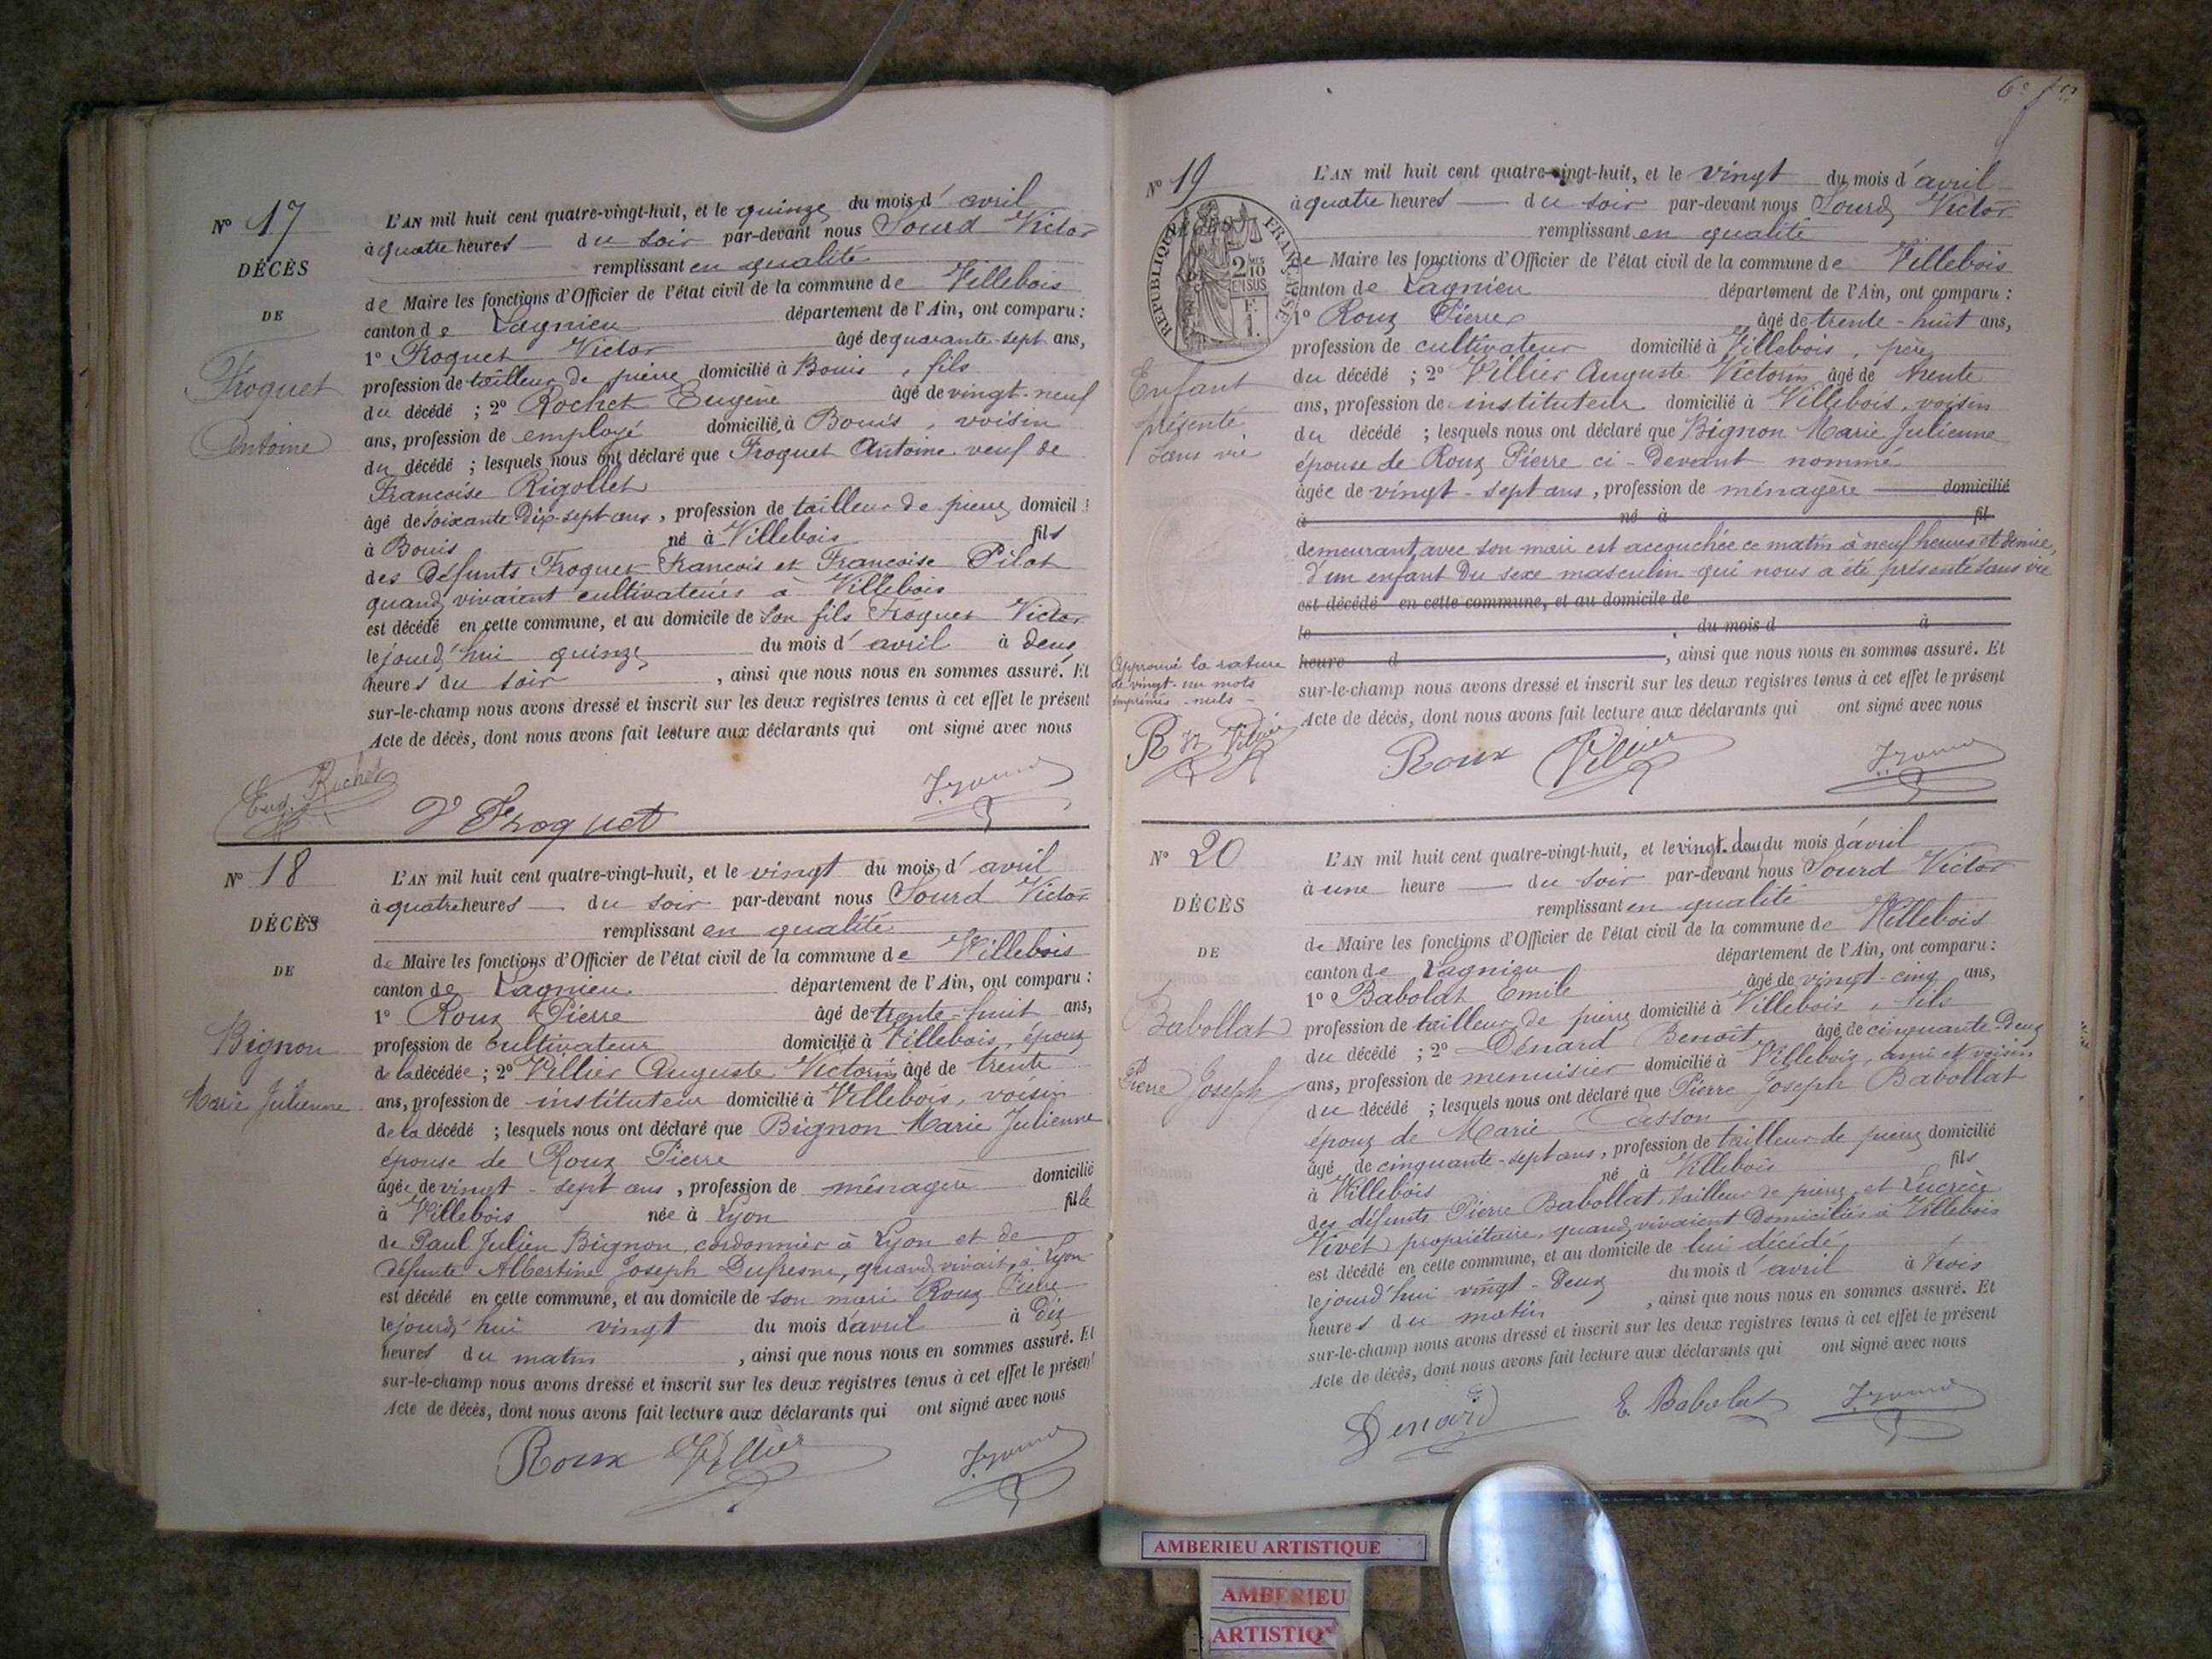 N° 17
DÉCÈS
DE
Froquet
Antoine
L'AN mil huit cent quatre-vingt-huit, et le quinze du mois d'avril
à quatre heures du soir par-devant nous Sourd Victor
remplissant en qualité
de Maire les fonctions d'Officier de l'état civil de la commune de Villebois
canton de Lagnieu département de l'Ain, ont comparu :
1° Froquet Victor âgé de quarante-sept ans,
profession de tailleur de pierre domicilié à Bouis, fils
du décédé ; 2° Rochet Eugène âgé de vingt-neuf
ans, profession de employé domicilié à Bouis, voisin
du décédé ; lesquels nous ont déclaré que Froquet Antoine veuf de
Francoise Rigollet
âgé de soixante Dix-sept ans, profession de tailleur de pierre domicil
à Bouis né à Villebois fils
des Défunts Froquet Francois et Francoise Pilot
quand vivaient cultivateurs à Villebois
est décédé en cette commune, et au domicile de son fils Froquet Victor
le jourd'hui quinze du mois d'avril à Deux
heures du soir, ainsi que nous nous en sommes assuré. Et
sur-le-champ nous avons dressé et inscrit sur les deux registres tenus à cet effet le présent
Acte de décès, dont nous avons fait lecture aux déclarants qui ont signé avec nous
Eug. Rochet
V Froquet
N° 18
DÉCÈS
DE
Bignon
Marie Julienne
L'AN mil huit cent quatre-vingt-huit, et le vingt du mois d'avril
à quatre heures du soir par-devant nous Sourd Victor
remplissant en qualité
de Maire les fonctions d'Officier de l'état civil de la commune de Villebois
canton de Lagnieu département de l'Ain, ont comparu :
1° Roux Pierre âgé de trente-huit ans,
profession de cultivateur domicilié à Villebois, époux
de la décédée ; 2° Villier Auguste Victorin âgé de trente
ans, profession de instituteur domicilié à Villebois, voisin
de la décédé ; lesquels nous ont déclaré que Bignon Marie Julienne
épouse de Roux Pierre
âgée de vingt-sept ans, profession de ménagère domicilié
à Villebois née à Lyon fille
de Paul Julien Bignon, cordonnier à Lyon et de
défunte Albertine Joseph Dufresne, quand vivait, à Lyon
est décédé en cette commune, et au domicile de son mari Roux Pierre
le jourd'hui vingt du mois d'avril à Dix
heures du matin, ainsi que nous nous en sommes assuré. Et
sur-le-champ nous avons dressé et inscrit sur les deux registres tenus à cet effet le présent
Acte de décès, dont nous avons fait lecture aux déclarants qui ont signé avec nous
Roux Villier
6e
N° 19
RÉPUBLIQUE FRANÇAISE
2/10 EN SUS
F. 1.
Enfant
présenté
sans vie
L'AN mil huit cent quatre-vingt-huit, et le vingt du mois d'avril
à quatre heures du soir par-devant nous Sourd Victor
remplissant en qualité
de Maire les fonctions d'Officier de l'état civil de la commune de Villebois
canton de Lagnieu département de l'Ain, ont comparu :
1° Roux Pierre âgé de trente-huit ans,
profession de cultivateur domicilié à Villebois, père
du décédé ; 2° Villier Auguste Victorin âgé de trente
ans, profession de instituteur domicilié à Villebois, voisin
du décédé ; lesquels nous ont déclaré que Bignon Marie Julienne
épouse de Roux Pierre ci-Devant nommé
âgée de vingt-sept ans, profession de ménagère domicilié
à né à fil
demeurant avec son mari est accouchée ce matin à neuf heures et demie,
d'un enfant Du sexe masculin qui nous a été présenté sans vie
est décédé en cette commune, et au domicile de
le du mois d à
heure d, ainsi que nous nous en sommes assuré. Et
sur-le-champ nous avons dressé et inscrit sur les deux registres tenus à cet effet le présent
Acte de décès, dont nous avons fait lecture aux déclarants qui ont signé avec nous
Approuvé la rature
de vingt-un mots
imprimés nuls
Roux Villier
N° 20
DÉCÈS
DE
Babollat
Pierre Joseph
L'AN mil huit cent quatre-vingt-huit, et le vingt-deux du mois d'avril
à une heure du soir par-devant nous Sourd Victor
remplissant en qualité
de Maire les fonctions d'Officier de l'état civil de la commune de Villebois
canton de Lagnieu département de l'Ain, ont comparu :
1° Babolat Emile âgé de vingt-cinq ans,
profession de tailleur de pierre domicilié à Villebois, fils
du décédé ; 2° Dénard Benoit âgé de cinquante-Deux
ans, profession de menuisier domicilié à Villebois, ami et voisin
du décédé ; lesquels nous ont déclaré que Pierre Joseph Babollat
époux de Marie Casson
âgé de cinquante-sept ans, profession de tailleur de pierre domicilié
à Villebois né à Villebois fils
des défunts Pierre Babollat, tailleur de pierre et Lucrèce
Vivet propriétaire, quand vivaient Domiciliés à Villebois
est décédé en cette commune, et au domicile de lui décédé
le jourd'hui vingt-Deux du mois d'avril à trois
heures du matin, ainsi que nous nous en sommes assuré. Et
sur-le-champ nous avons dressé et inscrit sur les deux registres tenus à cet effet le présent
Acte de décès, dont nous avons fait lecture aux déclarants qui ont signé avec nous
Denard E. Babolat
AMBERIEU ARTISTIQUE
AMBERIEU
ARTISTIQ